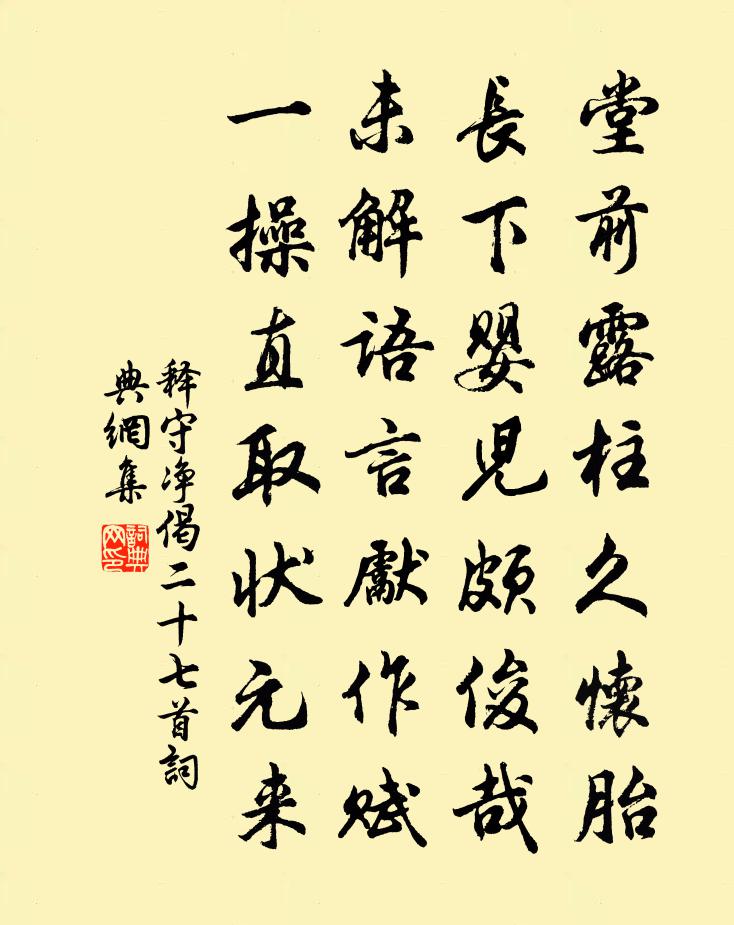 堂前露柱久懷胎
長下嬰児頗俊哉
未解語言獻作賦
一操直取状元来
释守净偈二十七首詞
典網集
詞典网印